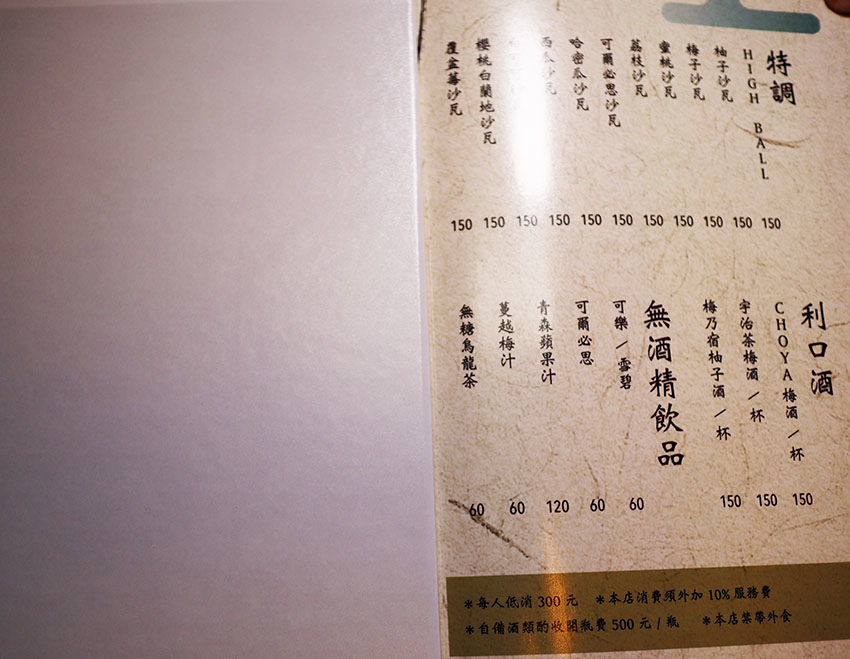 特調
HIGH BALL
柚子沙瓦
梅子沙瓦
蜜桃沙瓦
荔枝沙瓦
可爾必思沙瓦
哈密瓜沙瓦
西瓜沙瓦
櫻桃白蘭地沙瓦
覆盆莓沙瓦
150 150 150 150 150 150 150 150 150 150 150
利口酒
CHOYA梅酒／杯
宇治茶梅酒／杯
梅乃宿柚子酒／杯
無酒精飲品
可樂／雪碧
可爾必思
青森蘋果汁
蔓越梅汁
無糖烏龍茶
60 60 120 60 60 150 150 150
＊每人低消 300 元 ＊本店消費須外加 10% 服務費
＊自備酒類酌收開瓶費 500 元 / 瓶 ＊本店禁帶外食